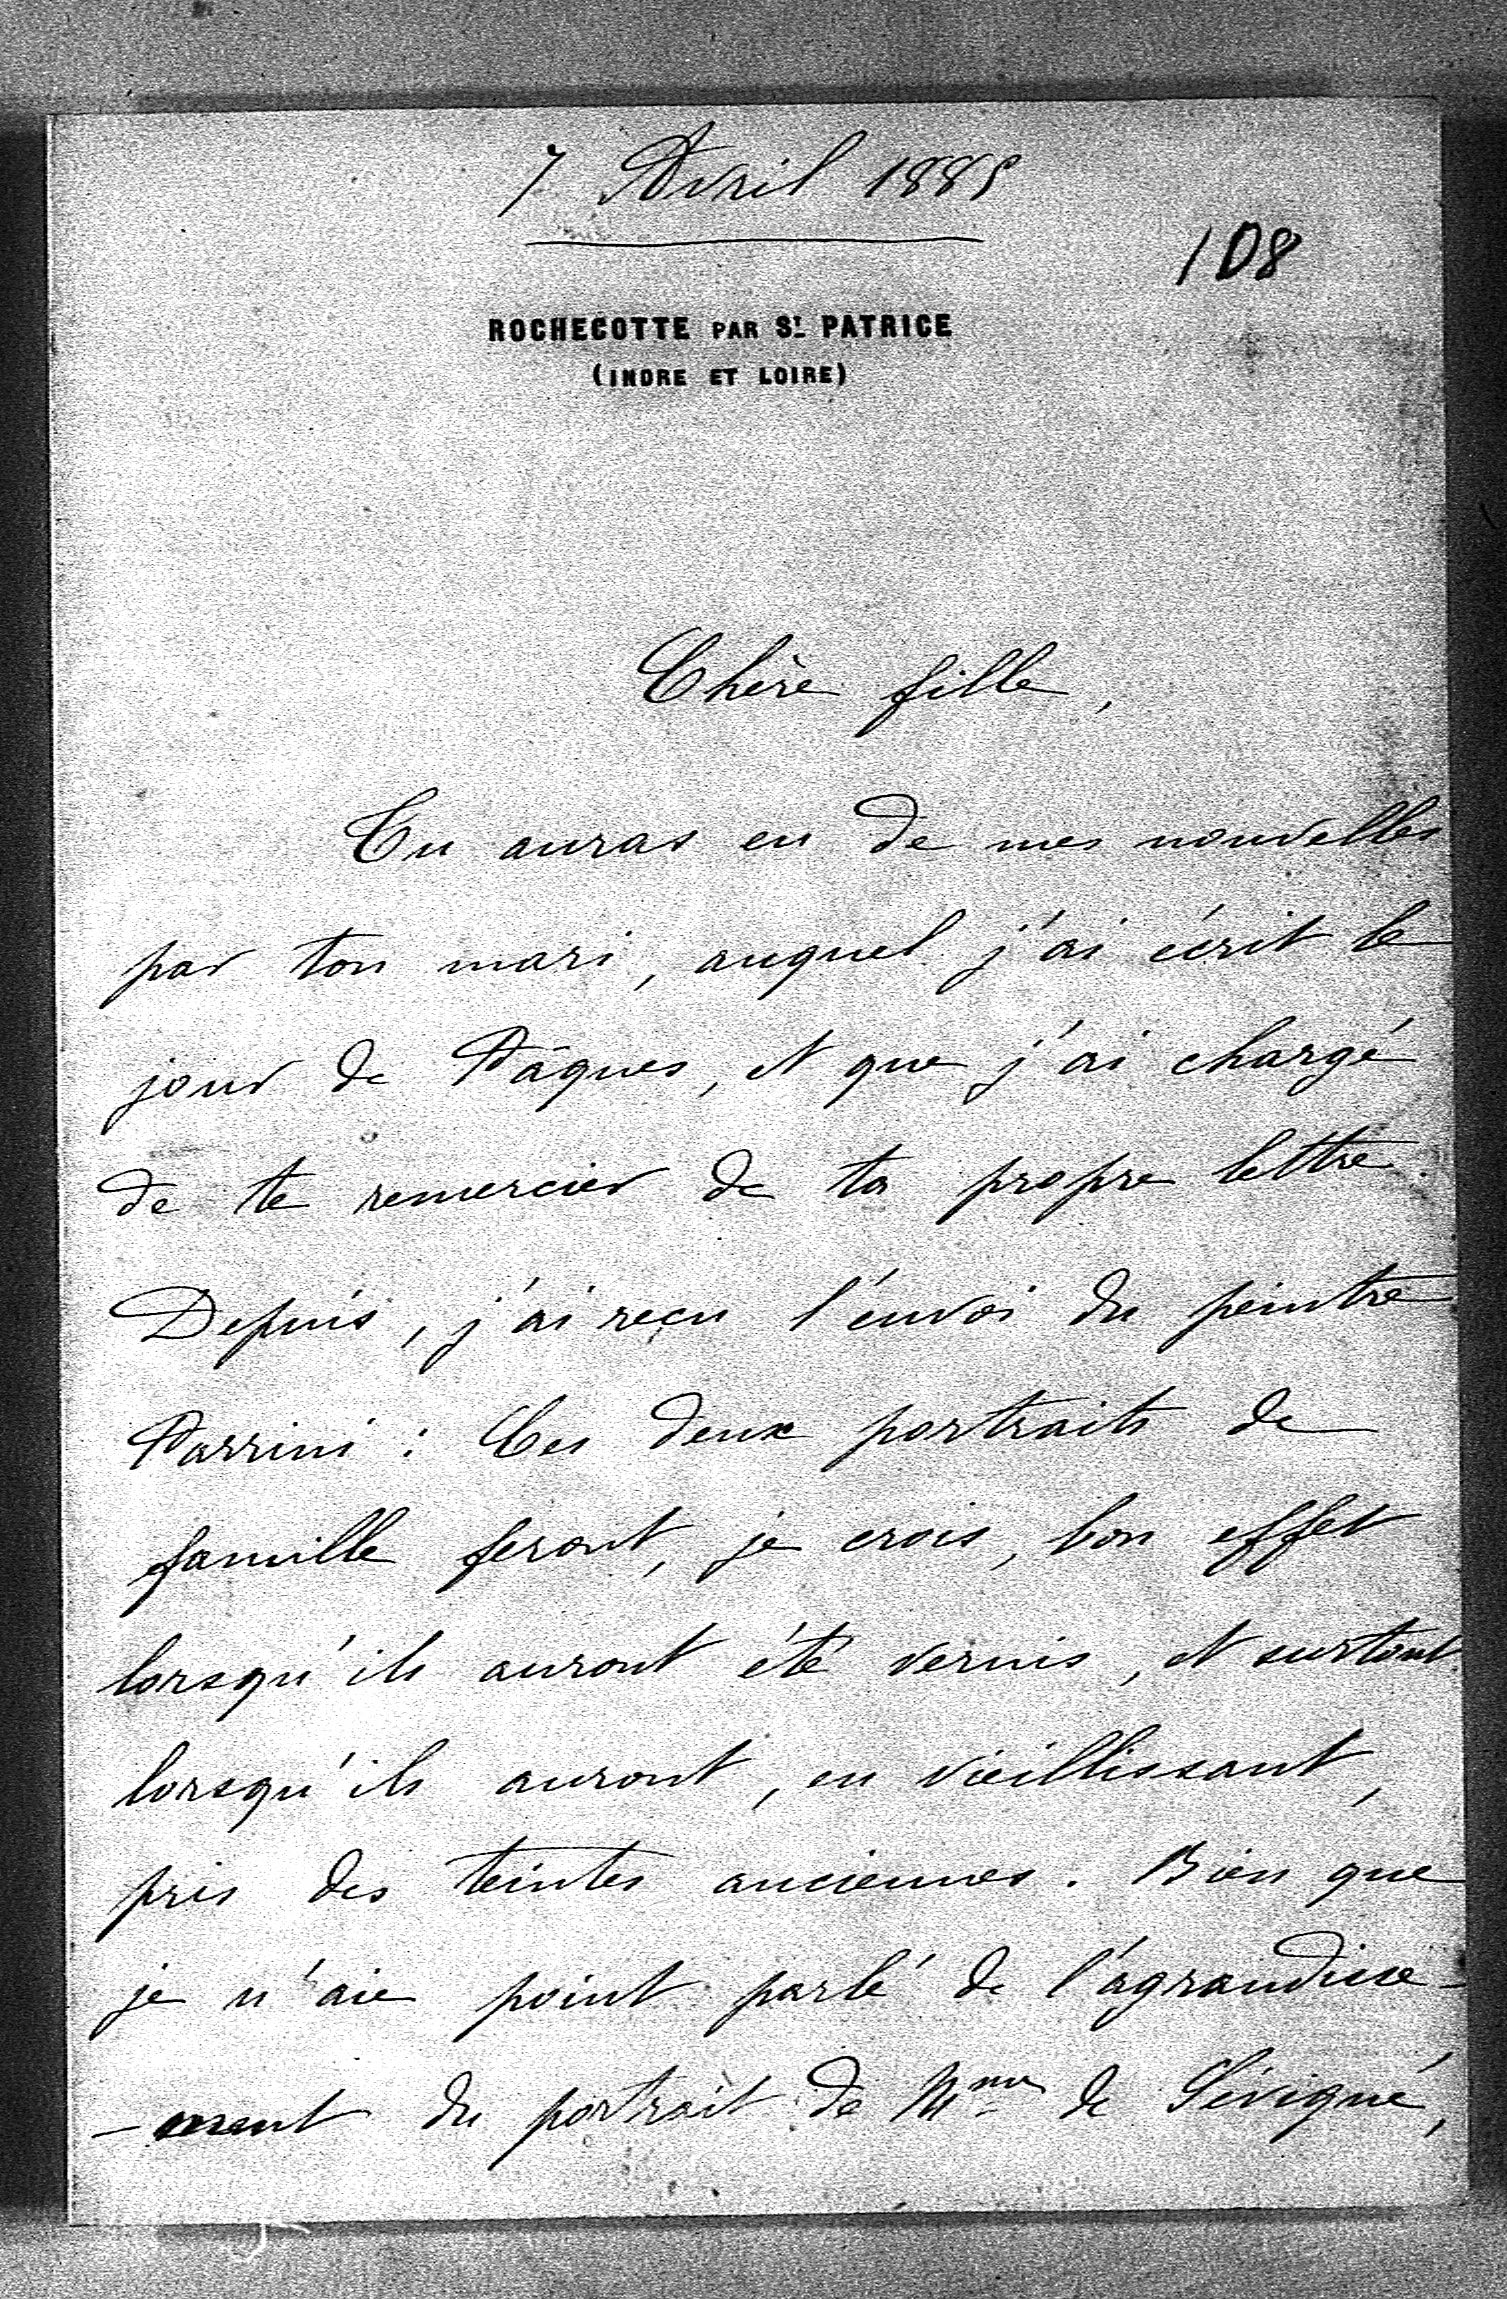 7 Avril 1885
108
ROCHECOTTE PAR ST PATRICE
(INDRE ET LOIRE)
Chère fille,
Tu auras eu de mes nouvelles
par ton mari, auquel j'ai écrit le
jour de Pâques, et que j'ai chargé
de te remercier de ta propre lettre.
Depuis, j'ai reçu l'envoi du peintre
Parrini : Ces deux portraits de
famille feront, je crois, bon effet
lorsqu'ils auront été vernis, et surtout
lorsqu'ils auront, en vieillissant,
pris des teintes anciennes. Bien que
je n'aie point parlé de l'agrandisse-
-ment du portrait de Mme de Sévigné,